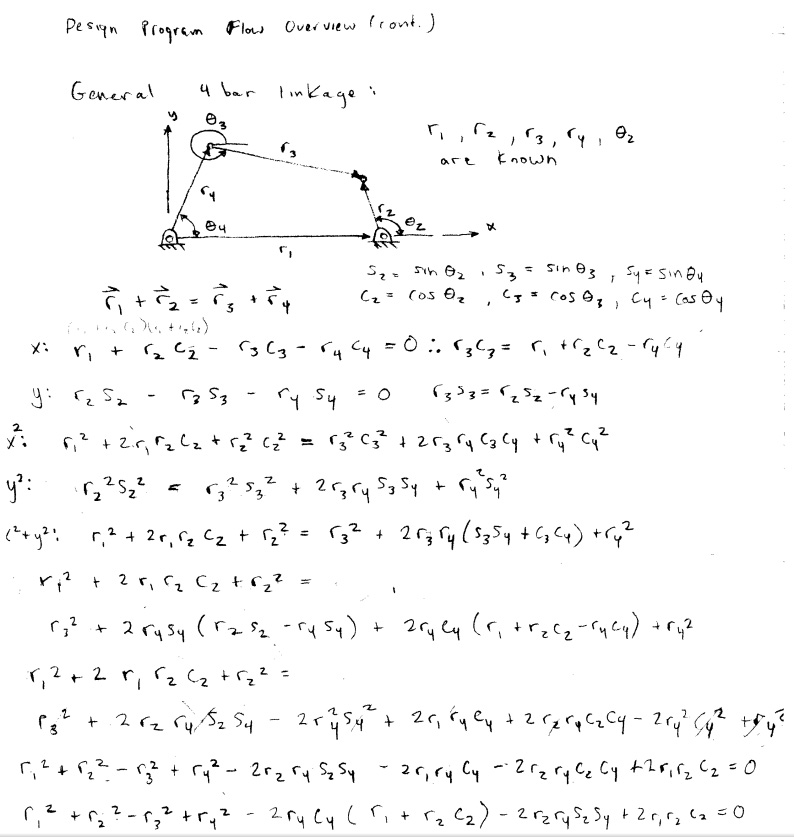 Design Program Flow Overview (cont.)
General 4 bar linkage:
y
θ3
r1, r2, r3, r4, θ2
are known
r3
r4
θ4
r2
θ2
x
r1
S2 = sin θ2, S3 = sin θ3, S4 = sin θ4
C2 = cos θ2, C3 = cos θ3, C4 = cos θ4
r⃗1 + r⃗2 = r⃗3 + r⃗4
x: r1 + r2 C2 - r3 C3 - r4 C4 = 0 ∴ r3 C3 = r1 + r2 C2 - r4 C4
y: r2 S2 - r3 S3 - r4 S4 = 0 r3 S3 = r2 S2 - r4 S4
x²: r1² + 2 r1 r2 C2 + r2² C2² = r3² C3² + 2 r3 r4 C3 C4 + r4² C4²
y²: r2² S2² = r3² S3² + 2 r3 r4 S3 S4 + r4² S4²
x²+y²: r1² + 2 r1 r2 C2 + r2² = r3² + 2 r3 r4 (S3 S4 + C3 C4) + r4²
r1² + 2 r1 r2 C2 + r2² =
r3² + 2 r4 S4 (r2 S2 - r4 S4) + 2 r4 C4 (r1 + r2 C2 - r4 C4) + r4²
r1² + 2 r1 r2 C2 + r2² =
r3² + 2 r2 r4 S2 S4 - 2 r4² S4² + 2 r1 r4 C4 + 2 r2 r4 C2 C4 - 2 r4² C4² + r4²
r1² + r2² - r3² + r4² - 2 r2 r4 S2 S4 - 2 r1 r4 C4 - 2 r2 r4 C2 C4 + 2 r1 r2 C2 = 0
r1² + r2² - r3² + r4² - 2 r4 C4 (r1 + r2 C2) - 2 r2 r4 S2 S4 + 2 r1 r2 C2 = 0